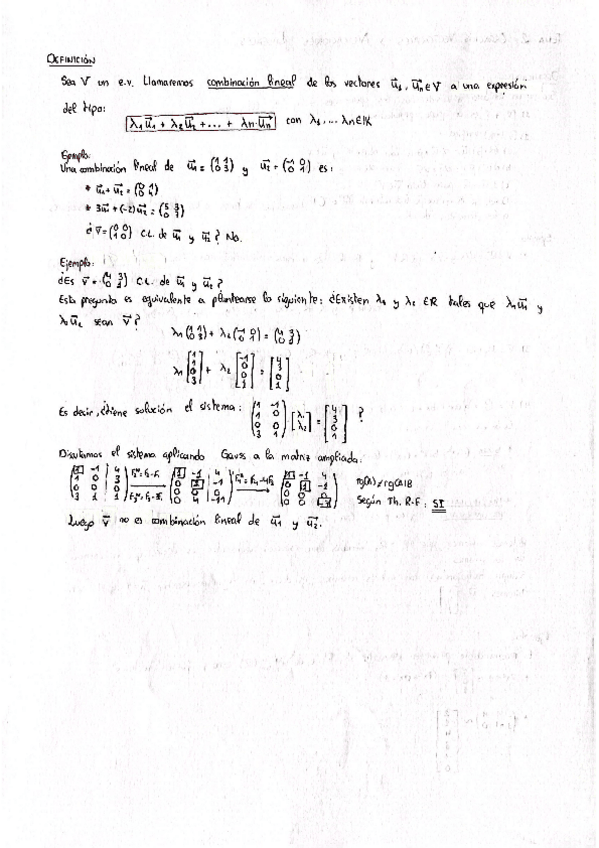 DEFINICIÓN
Sea V un e.v. Llamaremos combinación lineal de los vectores u⃗₁, u⃗ₙ∈V a una expresión
del tipo:
λ₁u⃗₁ + λ₂u⃗₂ + ... + λₙ·u⃗ₙ con λ₁, ... λₙ∈ℝ
Ejemplo:
Una combinación lineal de u⃗₁ = (1 1; 0 3) y u⃗₂ = (-1 0; 0 1) es:
* u⃗₁ + u⃗₂ = (0 1; 0 4)
* 3u⃗₁ + (-2)u⃗₂ = (5 3; 0 7)
¿v⃗ = (0 0; 1 0) C.L. de u⃗₁ y u⃗₂? No.
Ejemplo:
¿Es v⃗ = (4 3; 0 1) C.L. de u⃗₁ y u⃗₂?
Esta pregunta es equivalente a plantearse lo siguiente: ¿Existen λ₁ y λ₂ ∈ℝ tales que λ₁u⃗₁ y
λ₂u⃗₂ sean v⃗?
λ₁(1 1; 0 3) + λ₂(-1 0; 0 1) = (4 3; 0 1)
λ₁[1; 1; 0; 3] + λ₂[-1; 0; 0; 1] = [4; 3; 0; 1]
Es decir, ¿tiene solución el sistema: (1 -1; 1 0; 0 0; 3 1)·[λ₁; λ₂] = [4; 3; 0; 1] ?
Discutamos el sistema aplicando Gauss a la matriz ampliada:
(1 -1 | 4; 1 0 | 3; 0 0 | 0; 3 1 | 1) → (1 -1 | 4; 0 1 | -1; 0 0 | 0; 0 4 | -11) → rg(A)≠rg(A|B
Según Th. R-F: SI
Luego v⃗ no es combinación lineal de u⃗₁ y u⃗₂.